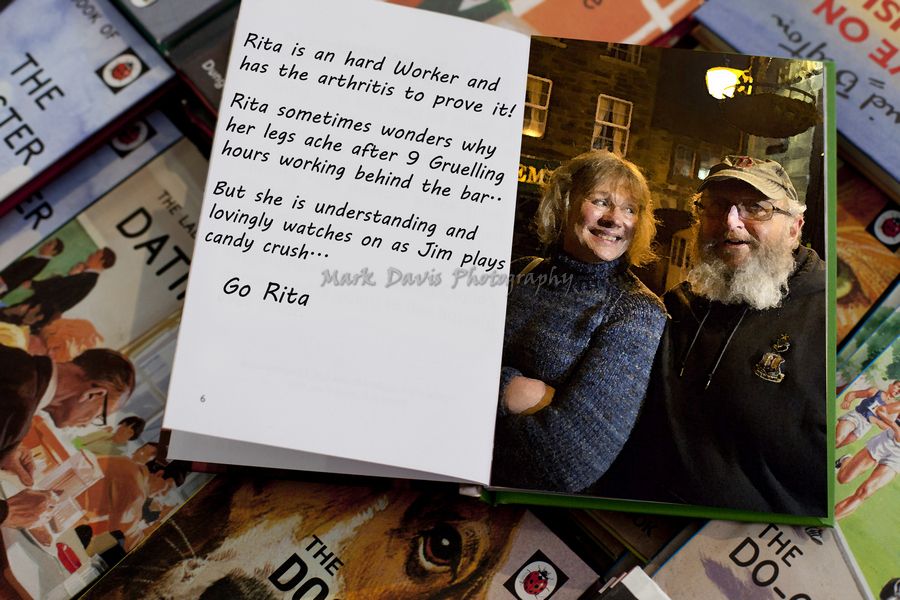 BOOK OF
THE
Rita is an hard Worker and
has the arthritis to prove it!
Rita sometimes wonders why
her legs ache after 9 Gruelling
hours working behind the bar..
But she is understanding and
lovingly watches on as Jim plays
candy crush...
Go Rita
6
Mark Davis Photography
THE
THE
DO-